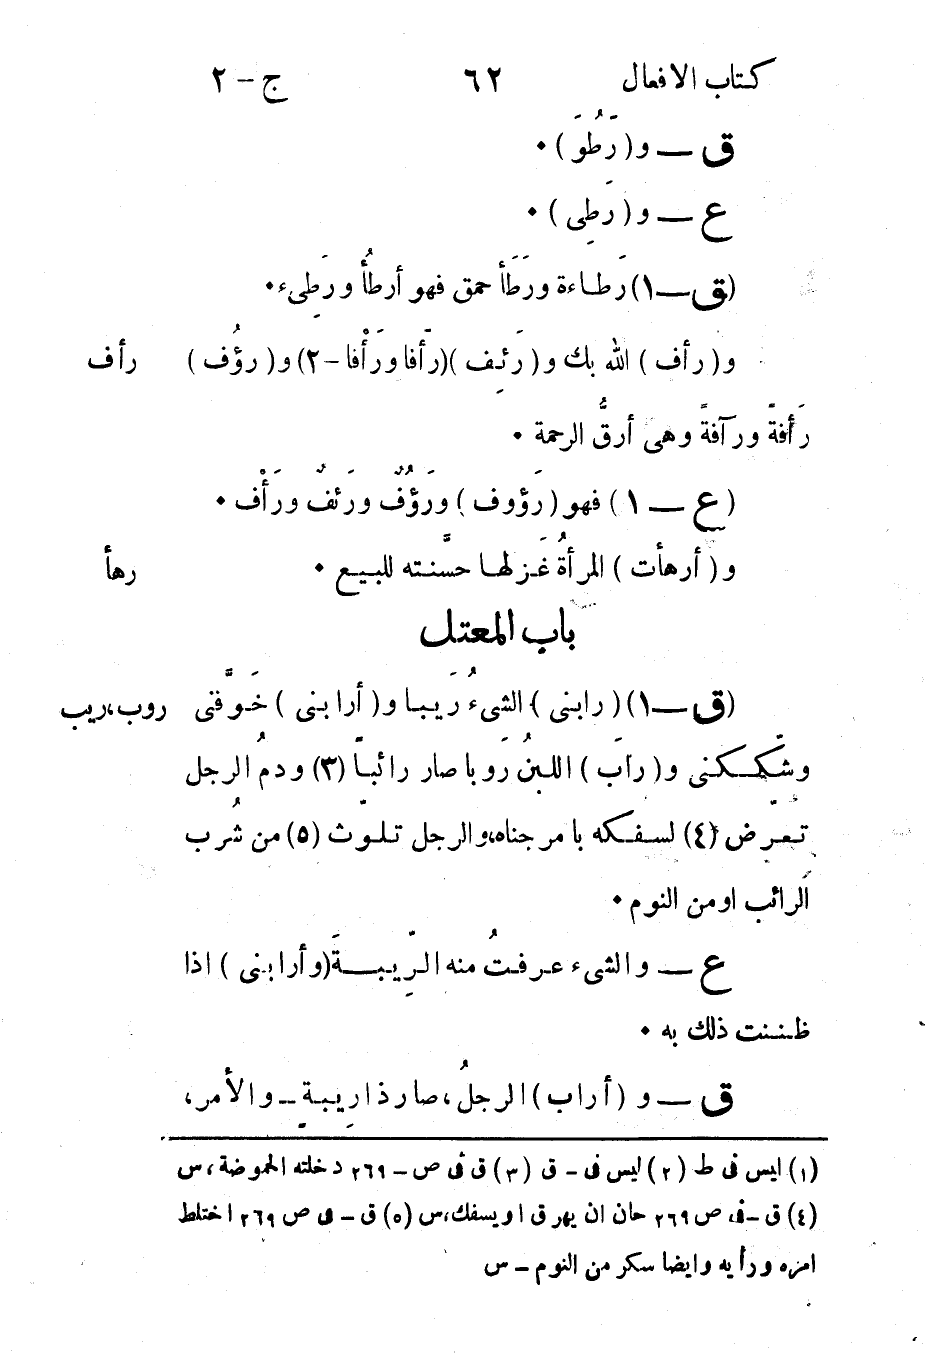 كتاب الافعال ٦٢ ج – ٢
ق — و ( رَطُوَ ) •
ع — و ( رَطِى ) •
(ق — ١) رَطاءة ورَطَأ حمق فهو أرطأُ ورَطِىء •
و ( رأف ) الله بك و ( رَئِف ) (رَأَفا ورَأْفا – ٢) و ( رؤُف ) رأف
رَأفةً ورآفةً وهى أرقُّ الرحمة •
( ع — ١ ) فهو ( رَؤوف ) ورَؤُفٌ ورَئفٌ ورَأْف •
و ( أرهأت ) المرأةُ غَزلها حسَّنته للبيع • رهأ
باب المعتل
(ق — ١) ( رابنى ) الشىءُ رَيبا و ( أرابنى ) خَوَّفنى روب،ريب
وشَكّكنى و ( رابَ ) اللبنُ رَوبا صار رائباً (٣) ودمُ الرجل
تعرّض (٤) لسفكه بامر جناه،والرجل تلوّث (٥) من شُرب
الرائب اومن النوم •
ع — والشىء عرفتُ منه الرِّيبةَ (وأرابنى ) اذا
ظننت ذلك به •
ق — و ( أراب ) الرجلُ، صار ذا رِيبةٍ – والأمر،
(١) ليس فى ط (٢) ليس فى – ق (٣) ق فى ص – ٢٦٩ دخلته الحموضة ،س
(٤) ق – فى ص ٢٦٩ حان ان يهرق او يسفك،س (٥) ق – فى ص ٢٦٩ اختلط
امره ورأيه وايضا سكر من النوم – س